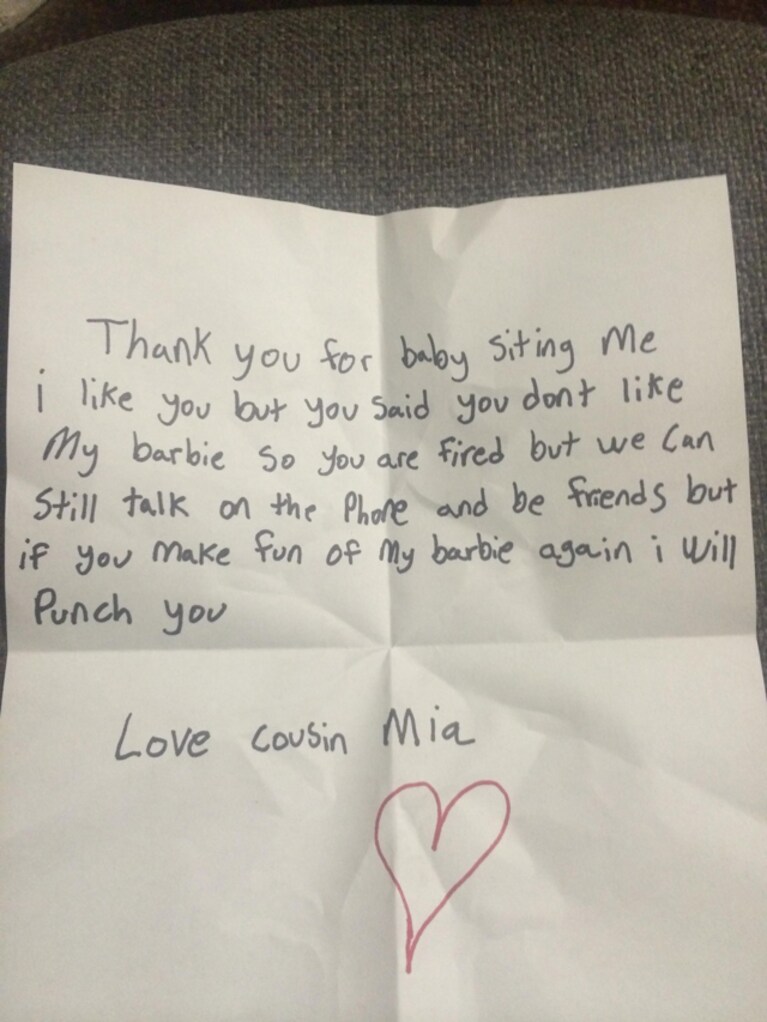 Thank you for baby siting me
i like you but you said you dont like
My barbie so you are fired but we can
still talk on the phone and be friends but
if you make fun of my barbie again i will
Punch you
Love cousin Mia